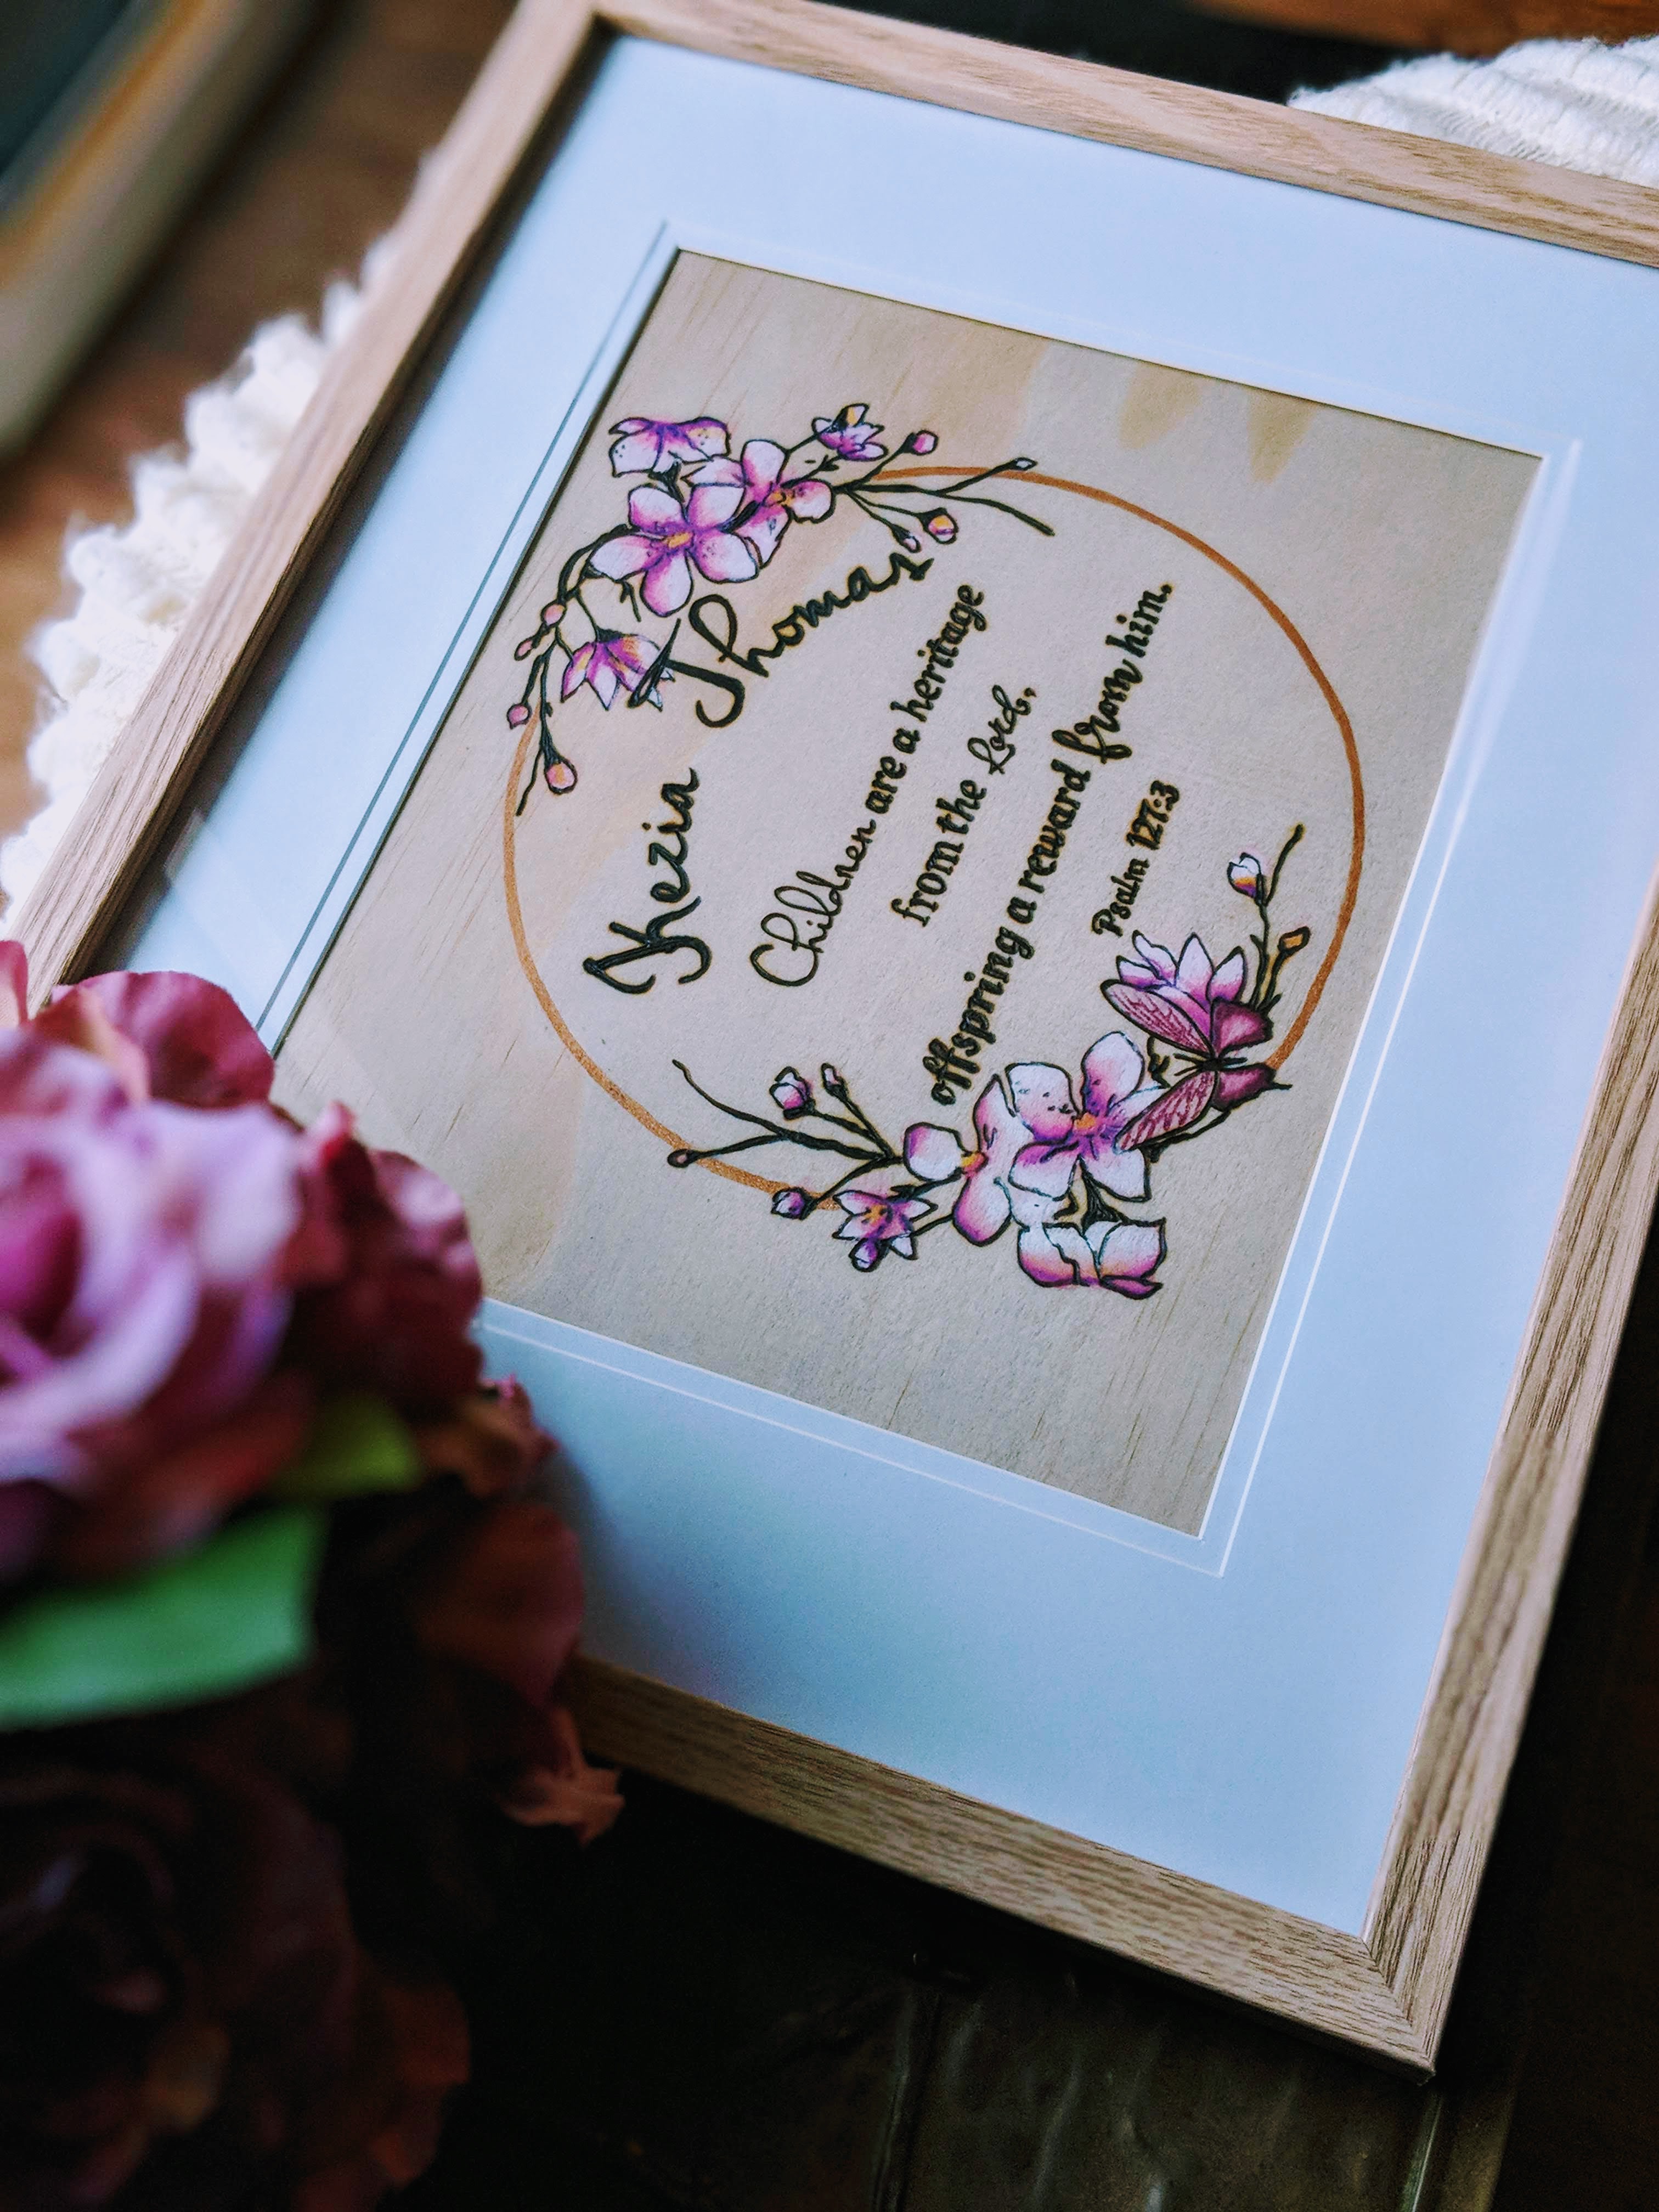 Kezia Thomas
Children are a heritage
from the Lord,
offspring a reward from him.
Psalm 127:3